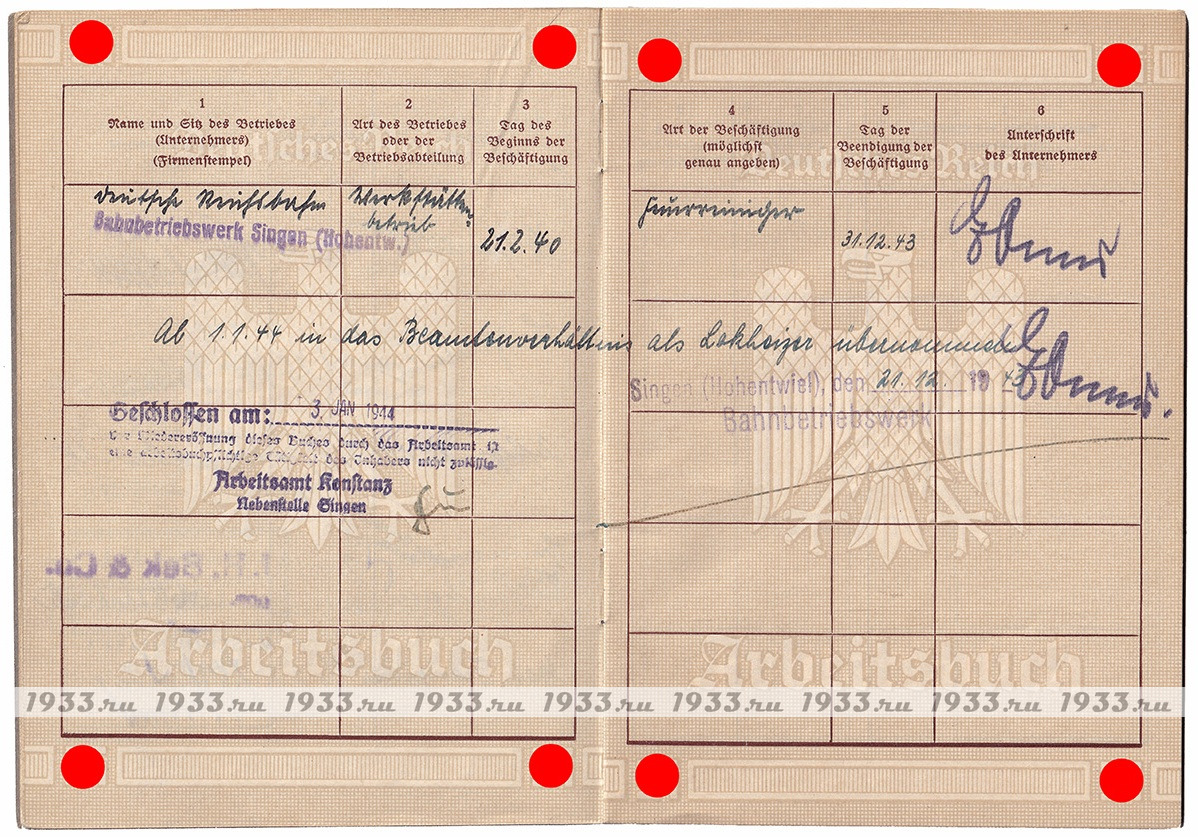 1
Name und Sitz des Betriebes
(Unternehmers)
(Firmenstempel)
2
Art des Betriebes
oder der
Betriebsabteilung
3
Tag des
Beginns der
Beschäftigung
4
Art der Beschäftigung
(möglichst
genau angeben)
5
Tag der
Beendigung der
Beschäftigung
6
Unterschrift
des Unternehmers
Deutsches Reich
Deutsches Reich
deutsche Reichsbahn
Bahnbetriebswerk Singen (Hohentw.)
Werkstätten-
betrieb
21.2.40
Feuerreiniger
31.12.43
Ab 1.1.44 in das Beamtenverhältnis als Lokheizer übernommen
Singen (Hohentwiel), den 21.12. 1943
Bahnbetriebswerk
Geschlossen am: 3. JAN 1944
Wiedereröffnung dieses Buches durch das Arbeitsamt ist
eine arbeitsbuchpflichtige Tätigkeit des Inhabers nicht zulässig.
Arbeitsamt Konstanz
Nebenstelle Singen
Bek & Co.
Arbeitsbuch
Arbeitsbuch
1933.ru 1933.ru 1933.ru 1933.ru 1933.ru 1933.ru 1933.ru 1933.ru 1933.ru